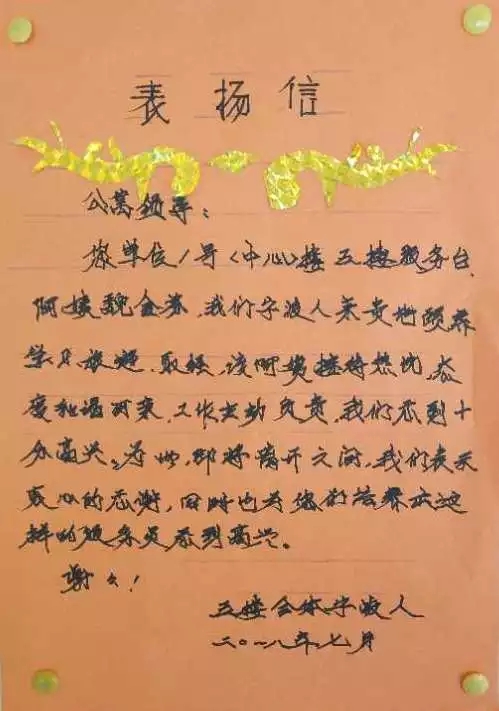 表扬信
公寓领导：
您单位1号(中心)楼五楼服务台
阿姨魏金券，我们宁波人来贵地颐养
学只旅趣、取经，该阿姨接待热忱，态
度和谒可亲，工作主动负责，我们感到十
分高兴。为此，即将离开之间，我们表示
衷心的感谢，同时也为您们培养出这
样的服务员感到高兴。
谢々！
五楼全体宁波人
二〇一八年七月